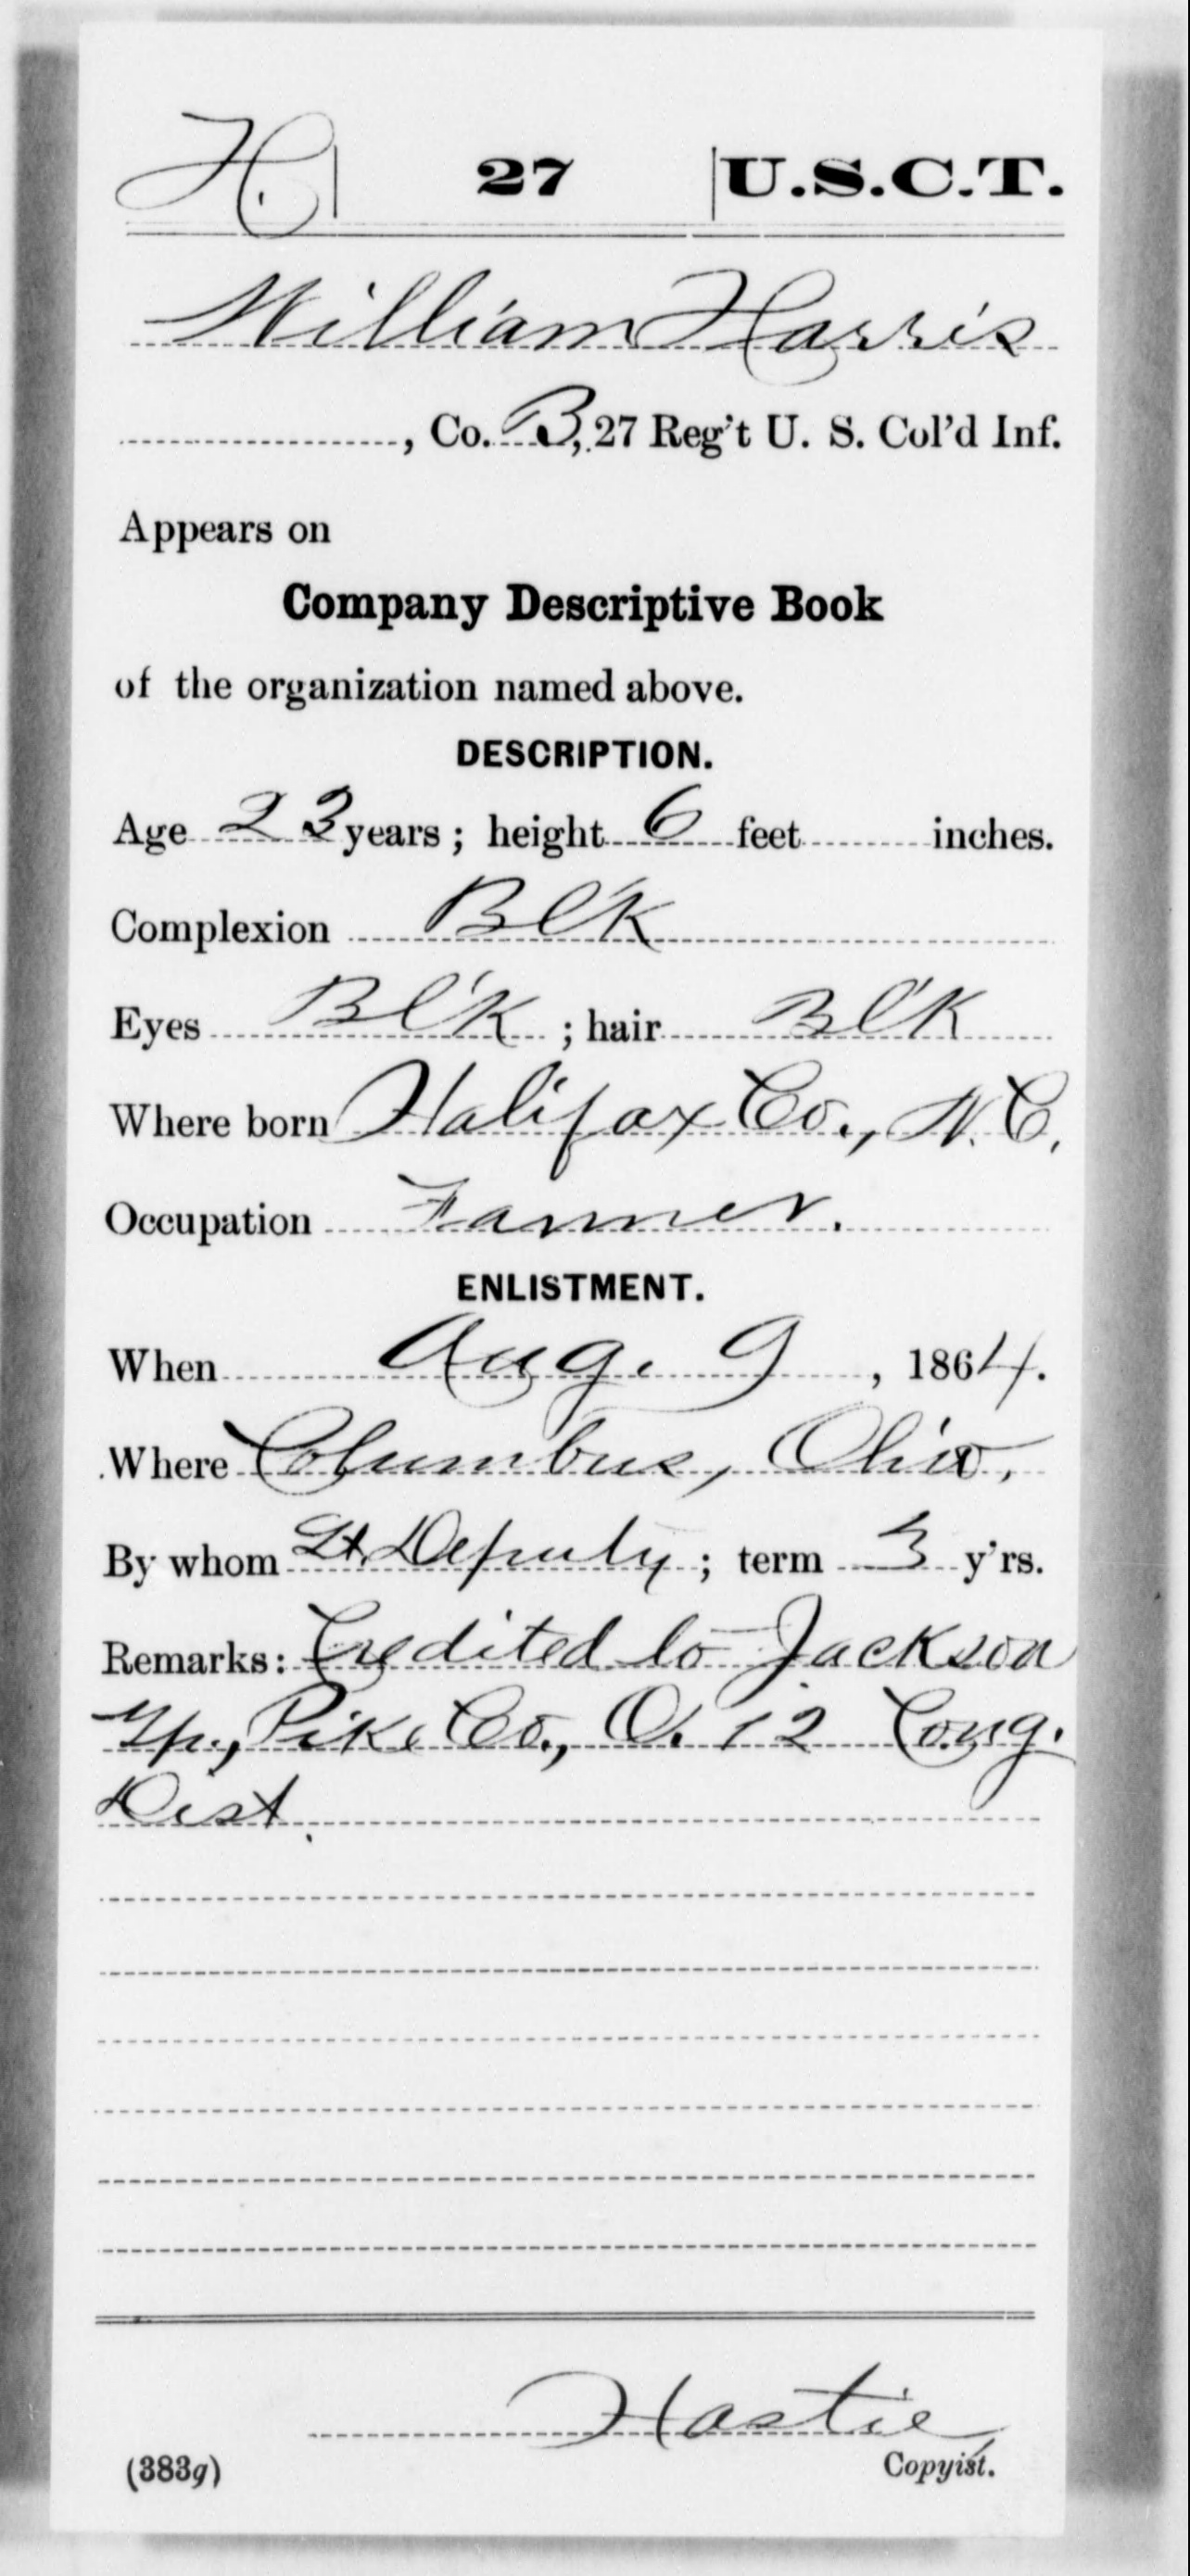 H. | 27 | U.S.C.T.
William Harris
, Co. B, 27 Reg't U. S. Col'd Inf.
Appears on
Company Descriptive Book
of the organization named above.
DESCRIPTION.
Age 23 years; height 6 feet inches.
Complexion Bl'k
Eyes Bl'k; hair Bl'k
Where born Halifax Co., N.C.
Occupation Farmer.
ENLISTMENT.
When Aug. 9, 1864.
Where Columbus, Ohio,
By whom Lt. Deputy; term 3 y'rs.
Remarks: Credited to Jackson
Tp., Pike Co., O. 12 Cong.
Dist.
Hastie
(383g) Copyist.